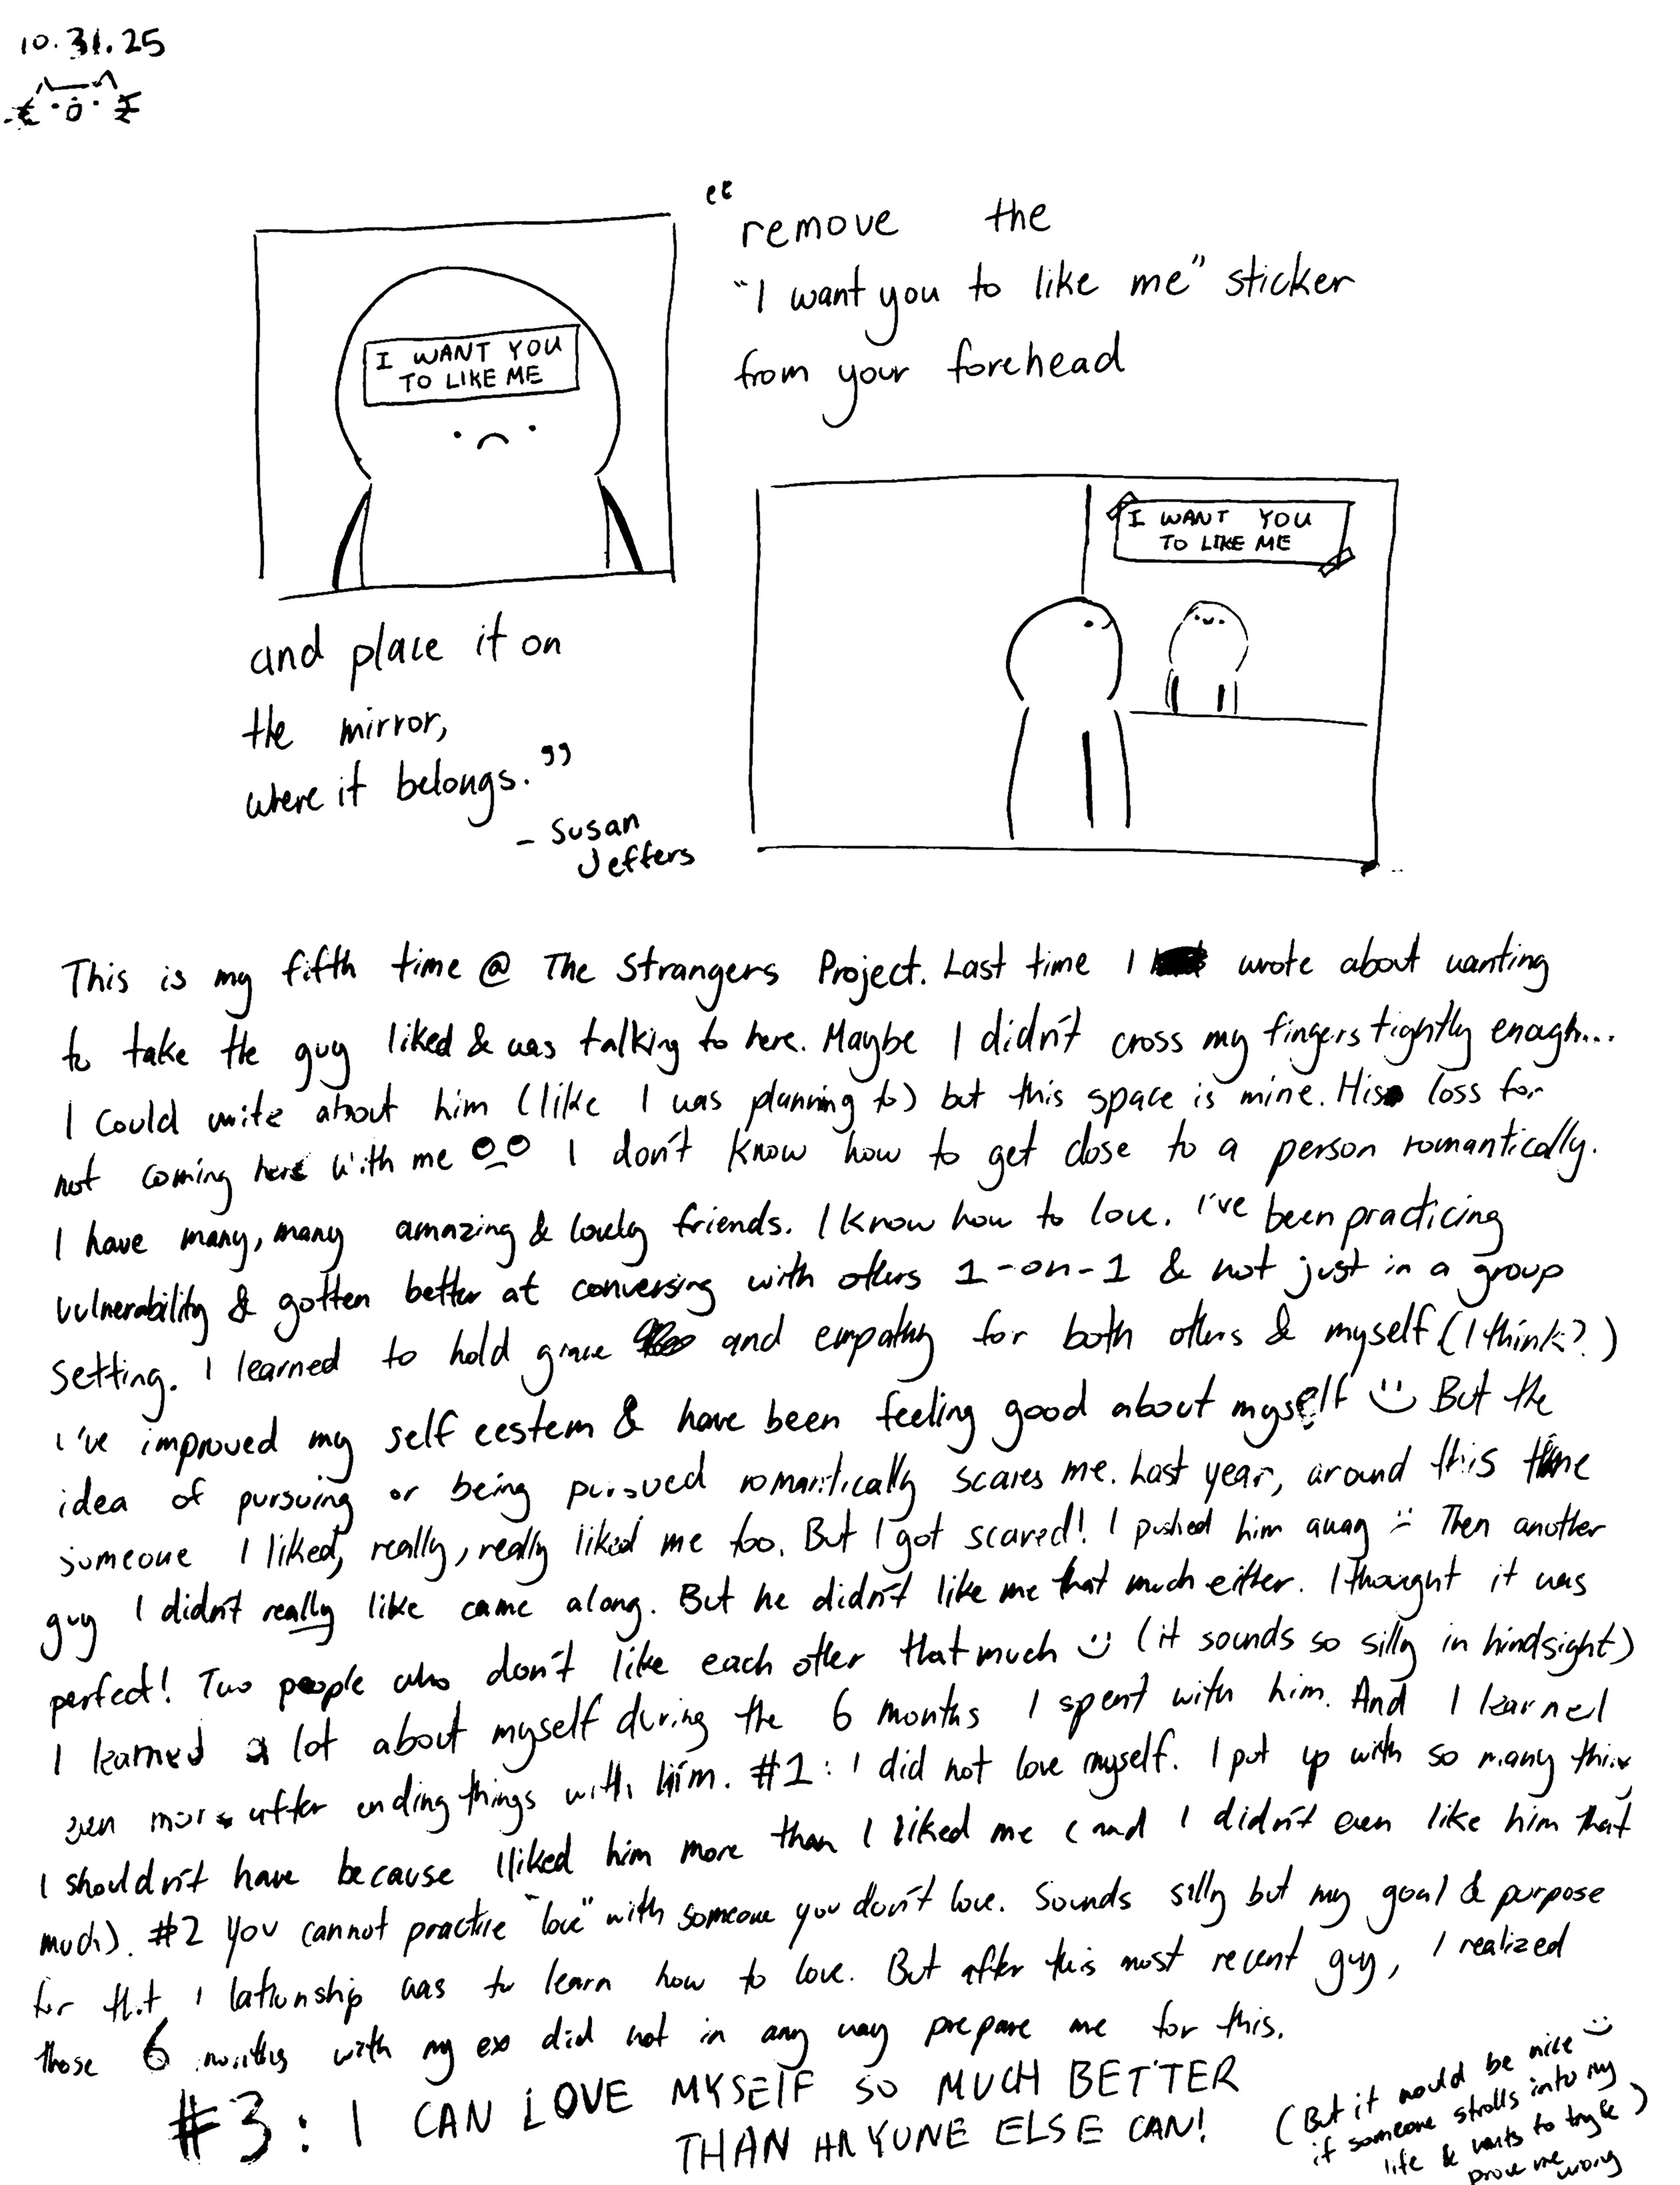 10.31.25
“
remove the
"I want you to like me" sticker
from your forehead
I WANT YOU
TO LIKE ME
I WANT YOU
TO LIKE ME
and place it on
the mirror,
where it belongs.”
- Susan
Jeffers
This is my fifth time @ The Strangers Project. Last time I wrote about wanting
to take the guy I liked & was talking to here. Maybe I didn't cross my fingers tightly enough...
I could write about him (like I was planning to) but this space is mine. His loss for
not coming here with me I don't know how to get close to a person romantically.
I have many, many amazing & lovely friends. I know how to love. I've been practicing
vulnerability & gotten better at conversing with others 1-on-1 & not just in a group
setting. I learned to hold grace and empathy for both others & myself (I think?)
I've improved my self eestem & have been feeling good about myself :) But the
idea of pursuing or being pursued romantically scares me. Last year, around this time
someone I liked, really, really liked me too. But I got scared! I pushed him away :( Then another
guy I didn't really like came along. But he didn't like me that much either. I thought it was
perfect! Two people who don't like each other that much :) (it sounds so silly in hindsight)
I learned a lot about myself during the 6 months I spent with him. And I learned
even more after ending things with him. #1: I did not love myself. I put up with so many things
I shouldn't have because I liked him more than I liked me (and I didn't even like him that
much). #2 You cannot practice "love" with someone you don't love. Sounds silly but my goal & purpose
for that relationship was to learn how to love. But after this most recent guy, I realized
those 6 months with my ex did not in any way prepare me for this.
#3: I CAN LOVE MYSELF SO MUCH BETTER
THAN ANYONE ELSE CAN!
(But it would be nice :)
if someone strolls into my
life & wants to try &
prove me wrong)